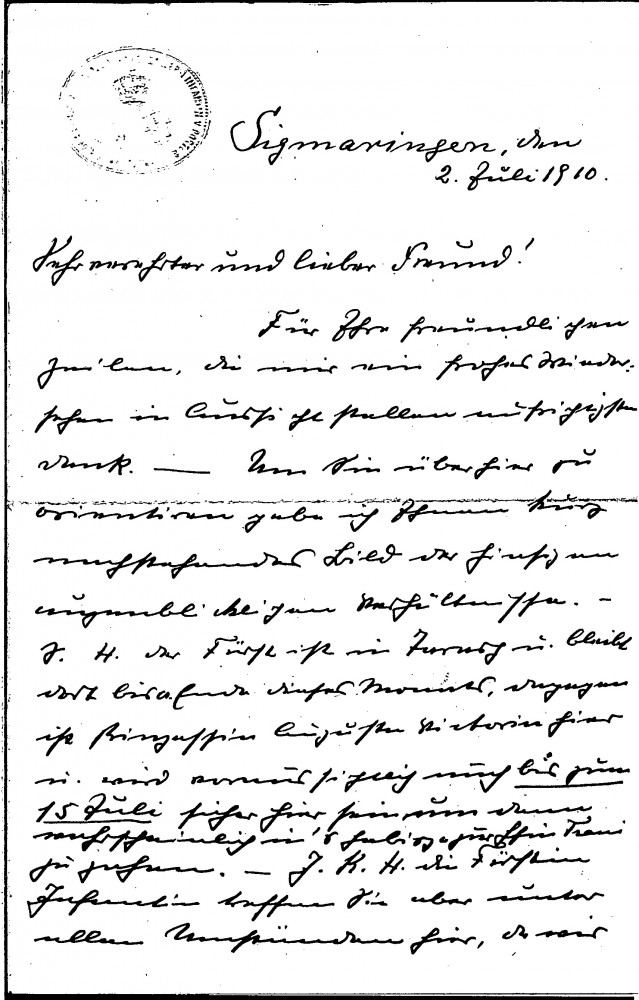 Sigmaringen, den
2. Juli 1910.
Sehr verehrter und lieber Freund!
Für Ihre freundlichen
Zeilen, die mir ein frohes Wieder-
sehen in Aussicht stellen aufrichtigsten
Dank. — Um Sie über hier zu
orientiren gebe ich Ihnen kurz
nachstehendes Bild der hiesigen
augenblicklichen Verhältnisse. –
S. H. der Fürst ist in u. bleibt
dort bis Ende dieses Monats, dagegen
ist Prinzessin Augusta Victoria hier
u. wird voraussichtlich auch bis zum
15 Juli sicher hier sein um dann
wahrscheinlich in's
zu gehen. — J. K. H. die Fürstin
Infantin treffen Sie aber unter
allen Umständen hier, da wir